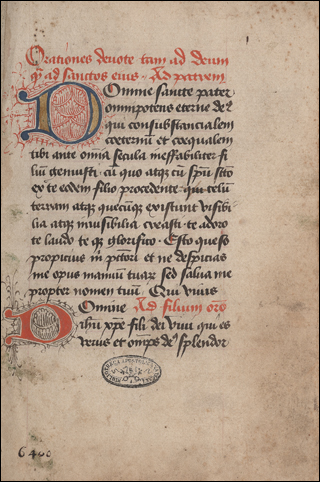 Orationes devote tam ad deum
q̃ ad sanctos eius · Ad patrem
Domine sancte pater
omnipotens eterne de⁹
qui consubstancialem
coeternũ et coequalem
tibi ante omĩa secula ineffabiliter fi
liũ genuisti cũ quo atqꝫ cũ spũ scõ
ex te eodem filio procedente · qui celũ
terram atqꝫ quecũqꝫ existunt visibi
lia atqꝫ inuisibilia creasti · te adoro
te laudo te qꝫ glorifico · Esto queso
propicius m̃ pctõri et ne despicias
me opus manuũ tuaꝝ sed salua me
propter nomen tuũ · Qui viuis
Domine Ad filium orõ
ihũ xp̃e fili dei viui qui es
verus et omp̃s de⁹ splendor
6400